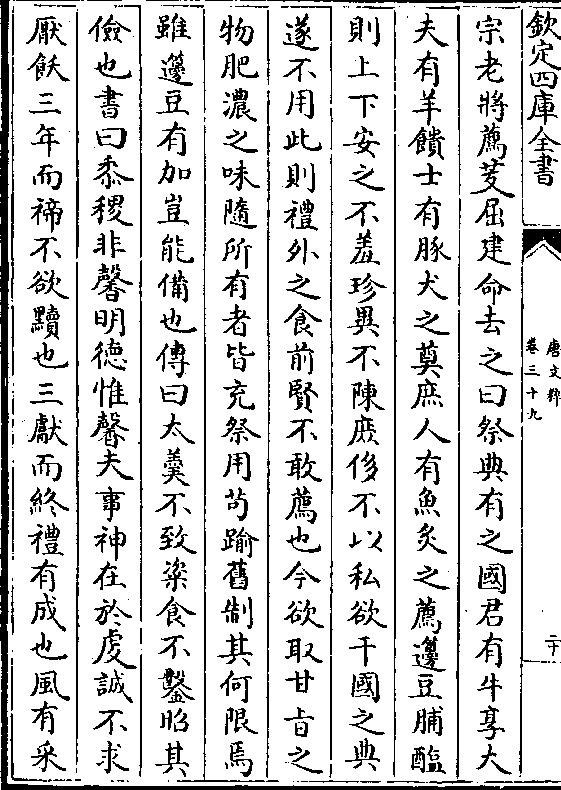 欽定四庫全書
唐文粹
卷三十九
二十
宗老將薦芰屈建命去之曰祭典有之國君有牛享大
夫有羊饋士有豚犬之奠庶人有魚炙之薦籩豆脯醢
則上下安之不羞珍異不陳庶侈不以私欲干國之典
遂不用此則禮外之食前賢不敢薦也今欲取甘旨之
物肥濃之味隨所有者皆充祭用苟踰舊制其何限焉
雖籩豆有加豈能備也傳曰太羹不致粢食不鑿昭其
儉也書曰黍稷非馨明德惟馨夫事神在於虔誠不求
厭飫三年而禘不欲黷也三獻而終禮有成也風有采